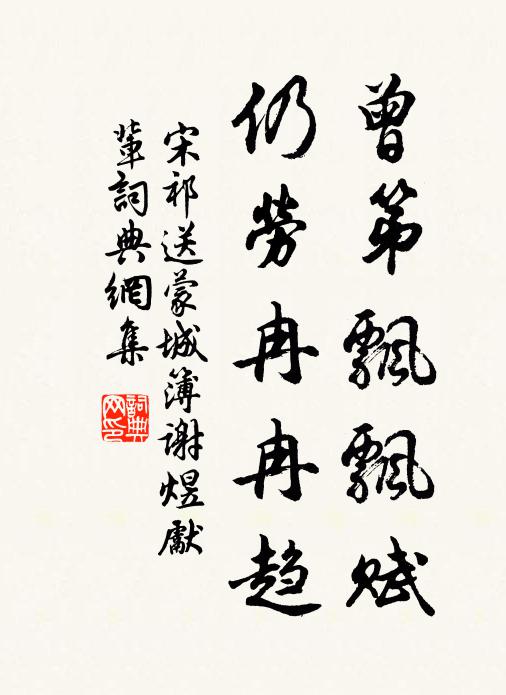 曾第飄飄賦
仍勞冉冉趋
宋祁送蒙城簿謝煜獻
輩詞典網集
詞典
网印